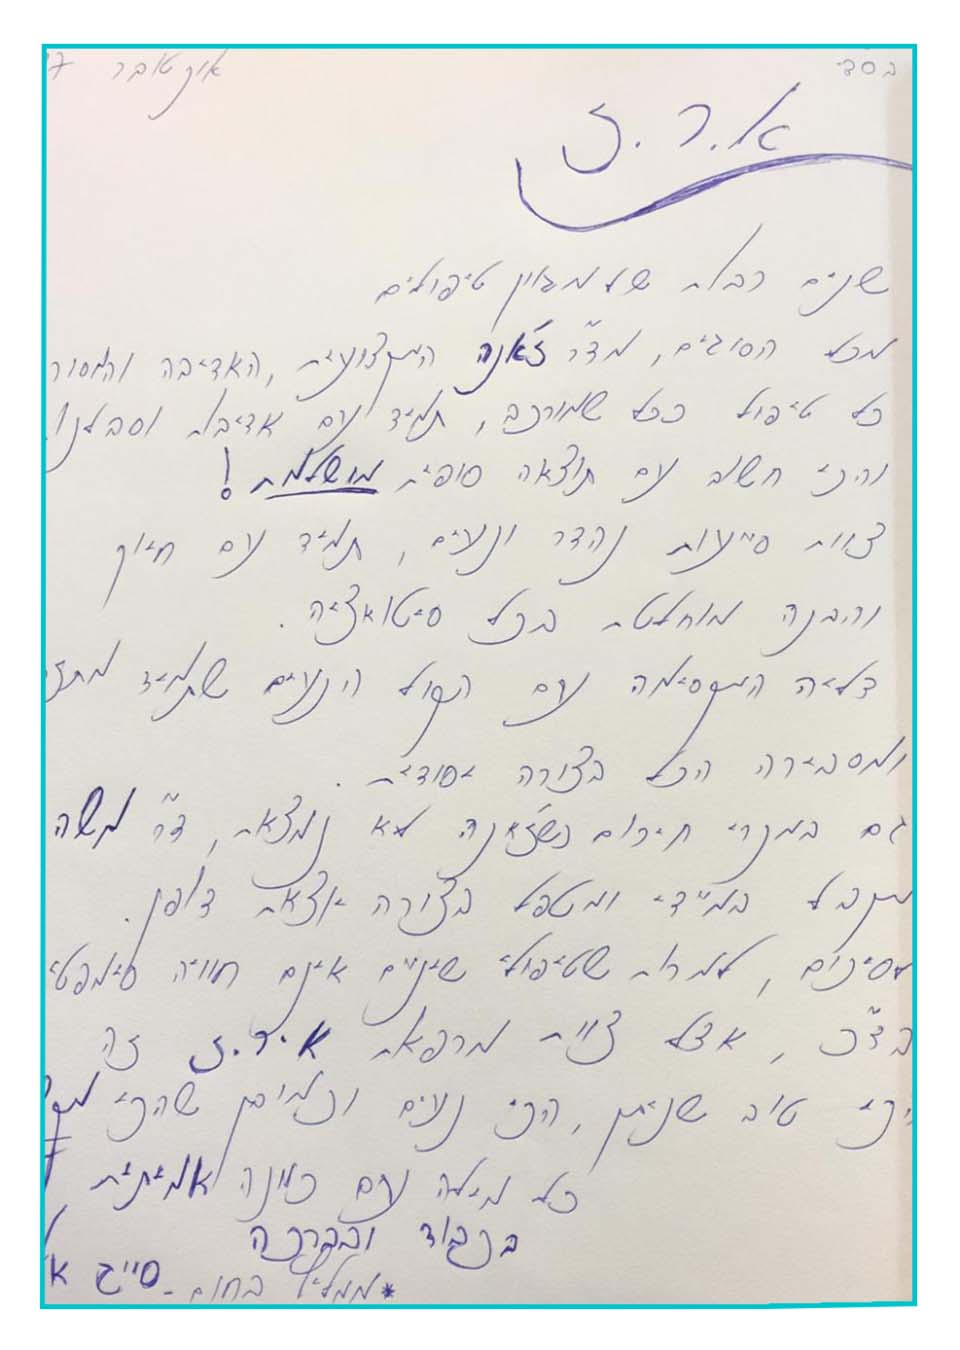 בסד אוקטובר 17
א.ר.ז
שנים רבות של מגוון טיפולים
מכל הסוגים, מד״ר ז׳אנה המקצועית, האדיבה והמסור
כל טיפול ככל שמורכב, תמיד עם אדיבות וסבלנו
והכי חשוב עם תוצאה סופית מושלמת!
צוות סייעות נהדר ונעים, תמיד עם חיוך
והבנה מוחלטת בכל סיטואציה.
דליה המקסימה עם הקול הנעים שתמיד
ומסבירה הכל בצורה יסודית.
גם במקרי חירום כשז׳אנה לא נמצאת, ד״ר משה
מקבל במיידי ומטפל בצורה יוצאת דופן.
לסיכום, למרות שטיפולי שיניים אינם חוויה סימפטי
בד״כ, אצל צוות מרפאת א.ר.ז זה
הכי טוב שניתן, הכי נעים וכמובן שהכי
כל מילה עם כוונה אמיתית
בכבוד ובברכה
*ממליץ בחום - סייג א